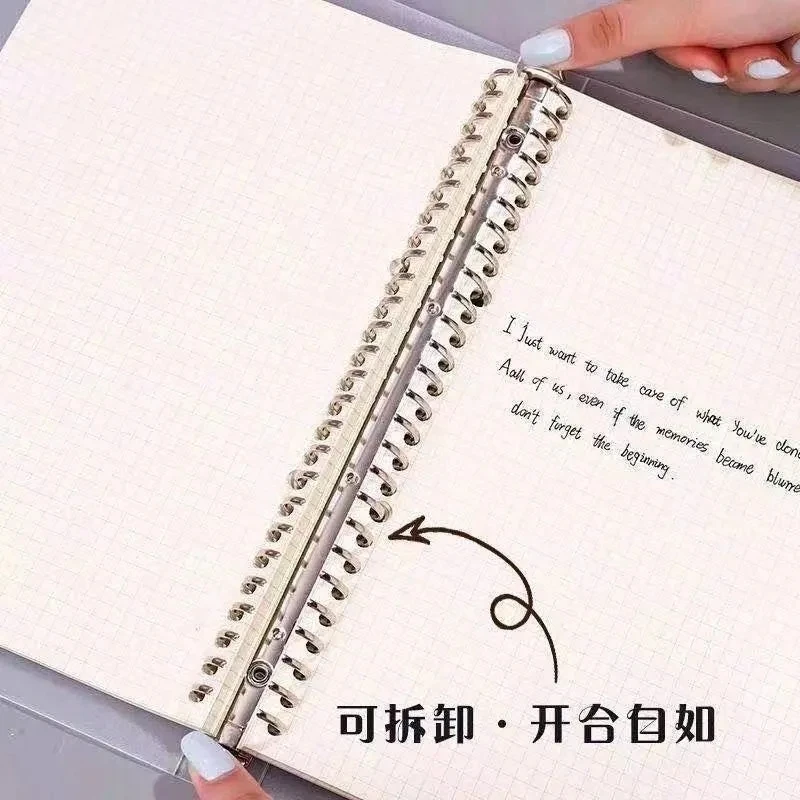 I Just want to take care of what You've done
Aall of us, even if the memories become blurre
don't forget the beginning.
可拆卸·开合自如